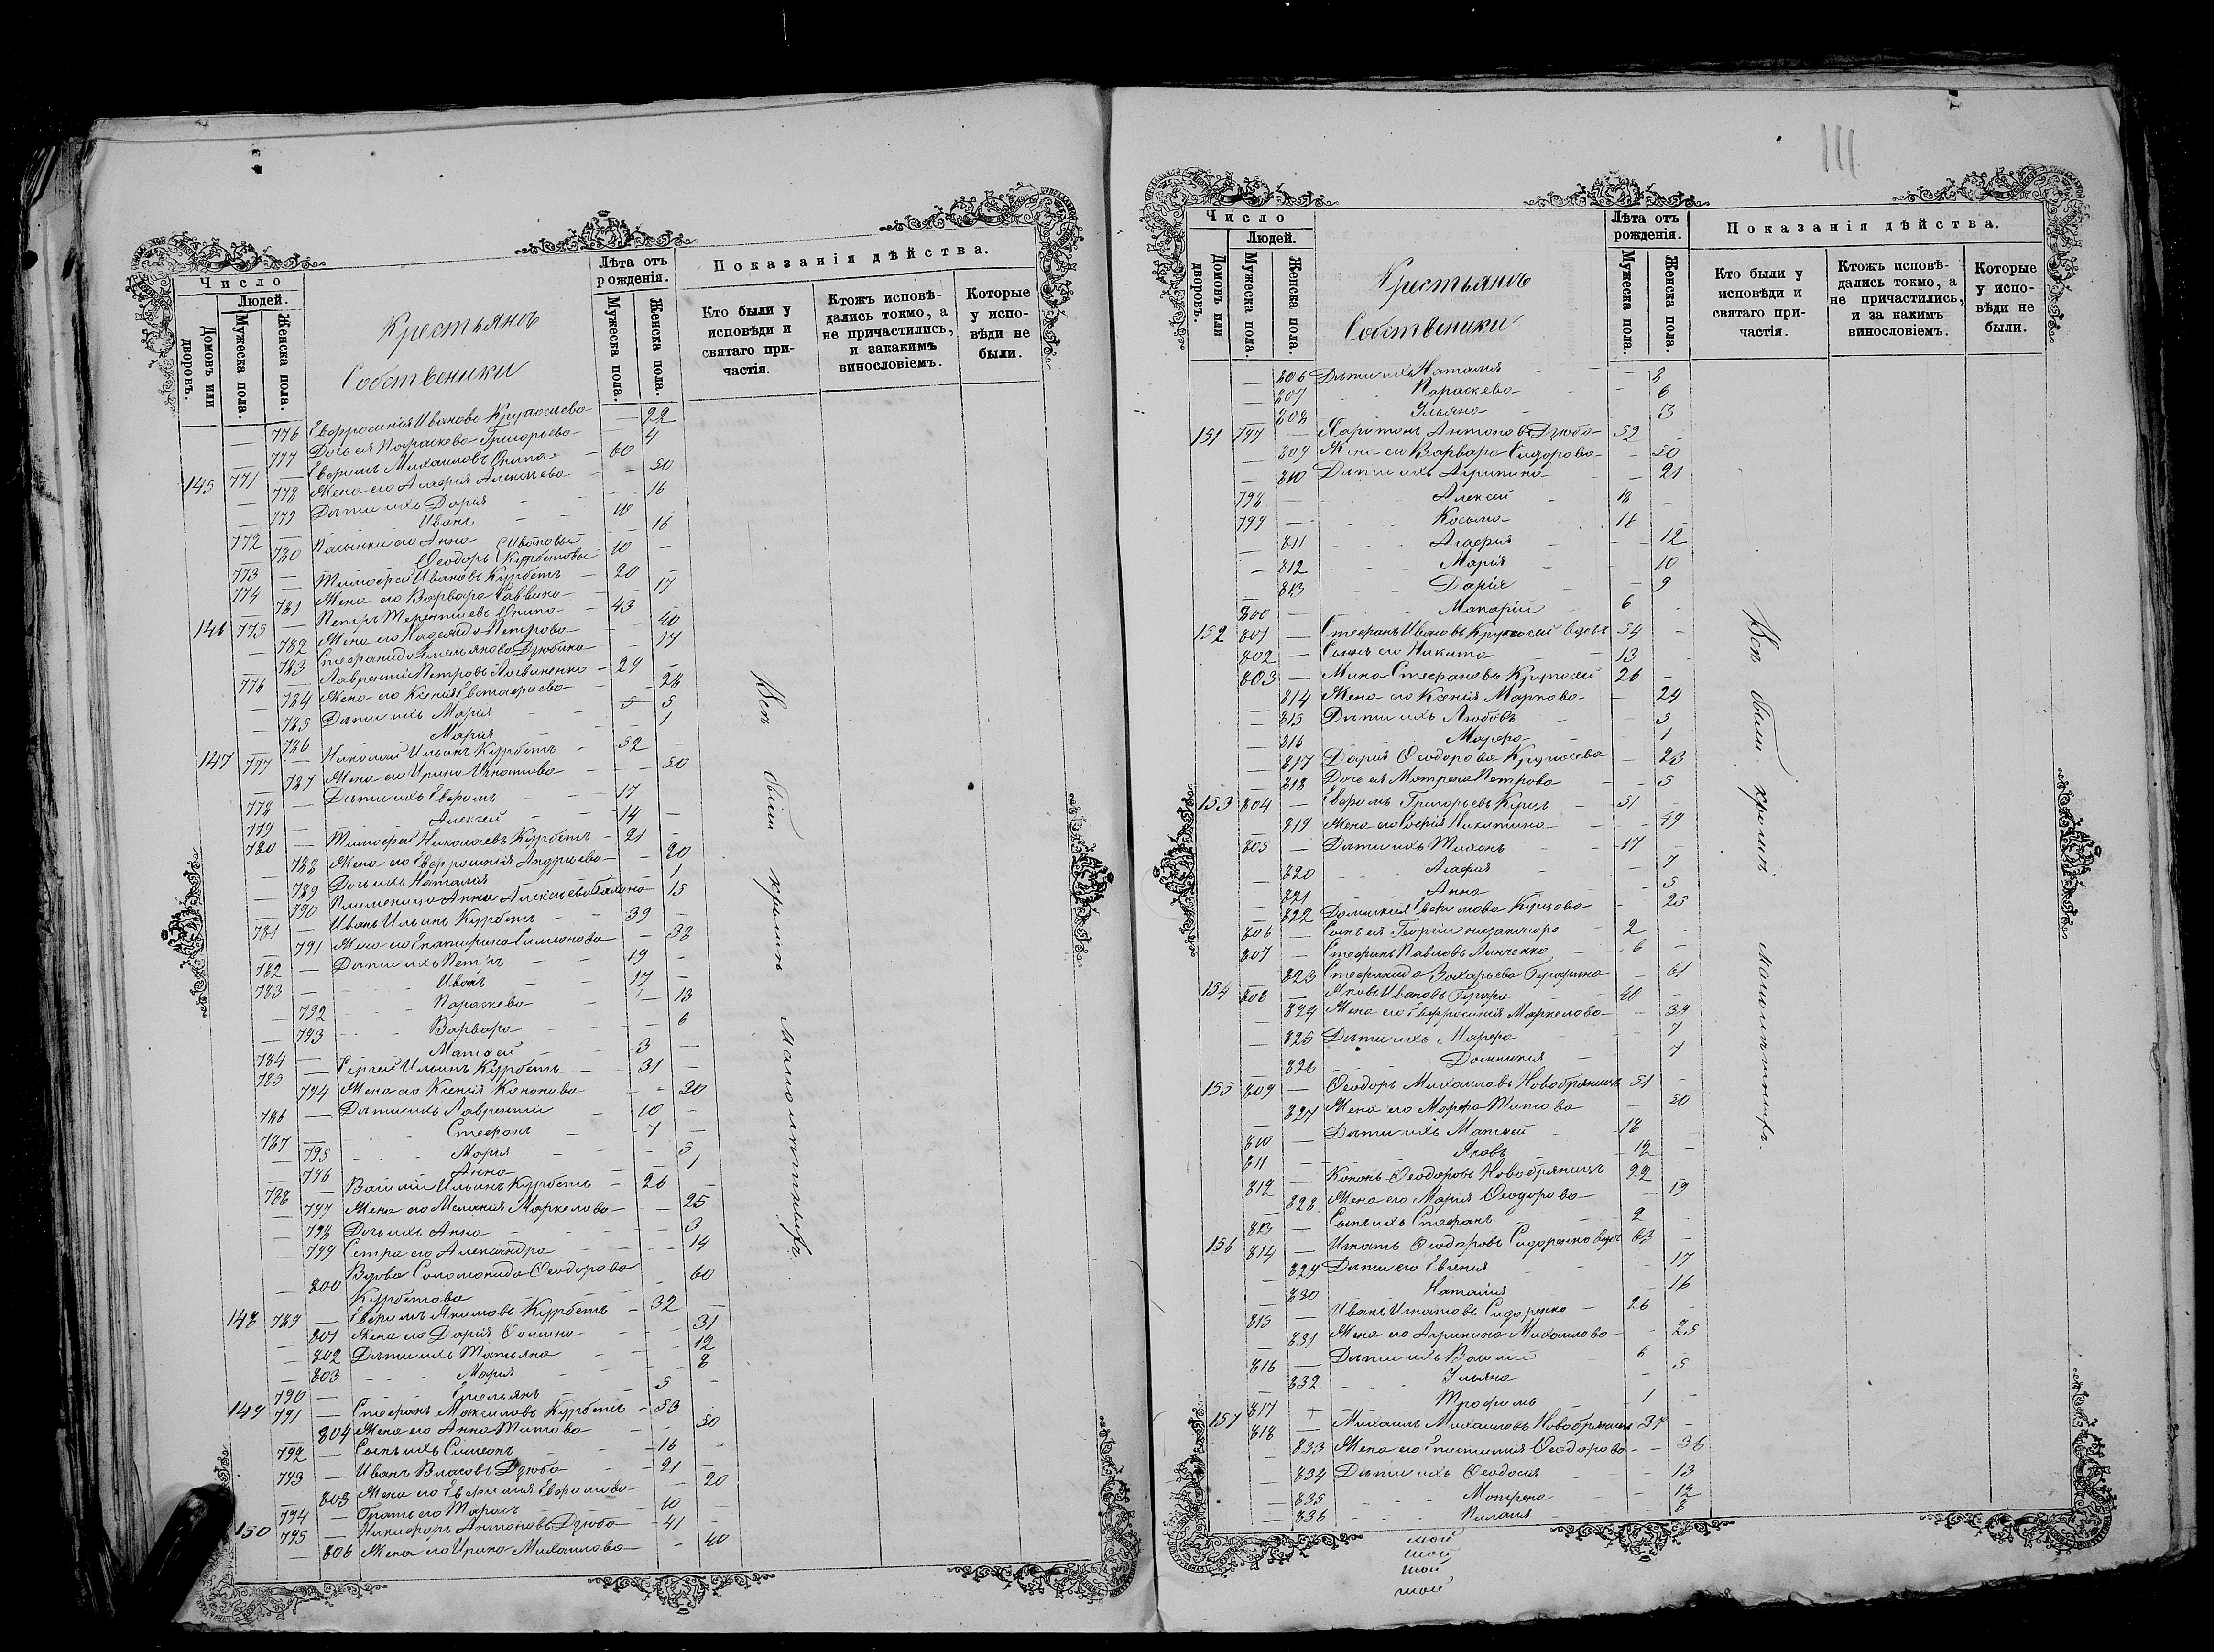 Число
Людей.
Домовъ или дворовъ.
Мужеска пола.
Женска пола.
Крестьянъ
Собственики
Лѣта отъ рожденія.
Мужеска пола.
Женска пола.
Показанія дѣйства.
Кто были у исповѣди и святаго причастія.
Ктожъ исповѣдались токмо, а не причастились, и закакимъ винословіемъ.
Которые у исповѣди не были.
— 776 Евфросинія Иванова — 22
— 777 Дочь ея Параскева Григорьева — 4
145 771 — Ефремъ Михаиловъ 60
— 778 Жена его Агафія Алексѣева — 50
— 779 Дѣти ихъ Дарія — 16
772 — Иванъ 10
— 780 Анна — 16
773 — Ѳеодоръ 10 —
774 — Тимофей Ивановъ Курбетъ 20 —
— 781 Жена его Варвара Саввина — 17
146 775 — Петръ Терентіевъ 43 —
— 782 Жена его Надежда Петрова — 40
— 783 Стефанида Емельянова Дзюбина — 17
776 — Лаврентій Петровъ 29 —
— 784 Жена его Ксенія Евстафиева — 28
— 785 Дѣти ихъ Марія 5
— 786 Марія — 1
147 777 — Николай Ильинъ Курбетъ 52 —
— 787 Жена его Ирина Игнатова — 50
778 — Дѣти ихъ Ефремъ 17
779 — Алексѣй 14 —
780 — Тимофей Николаевъ Курбетъ 21 —
— 788 Жена его Евфросинія Андріева — 20
— 789 Дочь ихъ Наталія — 1
— 790 Племеница Анна Алексѣева — 15
781 — Иванъ Ильинъ Курбетъ 39 —
— 791 Жена его Екатерина Симеонова — 38
782 — Дѣти ихъ Петръ 19 —
783 — Иванъ 17 —
— 792 Параскева — 13
— 793 Варвара — 6
784 — Матѳей 3 —
785 — Сергей Ильинъ Курбетъ 31 —
— 794 Жена его Ксенія Кононова — 30
786 — Дѣти ихъ Лаврентій 10 —
787 — Стефанъ 7 —
— 795 Марія — 5
— 796 Анна — 1
788 — Василій Ильинъ Курбетъ 26 —
— 797 Жена его Меланія Маркелова — 25
— 798 Дочь ихъ Анна — 3
— 799 Сестра его Александра — 14
— 800 Вдова Соломонида Ѳеодорова Курбетова — 60
148 789 — Ефремъ Якимовъ Курбетъ 32 —
— 801 Жена его Дарія Ѳомина — 31
— 802 Дѣти ихъ Татьяна — 12
— 803 Марія — 8
790 — Емельянъ 5 —
149 791 — Стефанъ Максимовъ Курбетъ 53
— 804 Жена его Анна Титова — 50
792 — Сынъ ихъ Симеонъ 16 —
793 — Иванъ Власовъ Дзюба 21 —
— 805 Жена его Евфимія Ефремова — 20
794 — Братъ его Тарасъ 10 —
150 795 — Никифоръ Антоновъ Дзюба 41 —
— 806 Жена его Ирина Михаилова — 40
Всѣ были кромѣ малолѣтнихъ.
Число
Людей.
Домовъ или дворовъ.
Мужеска пола.
Женска пола.
Крестьянъ
Собственики
Лѣта отъ рожденія.
Мужеска пола.
Женска пола.
Показанія дѣйства.
Кто были у исповѣди и святаго причастія.
Ктожъ исповѣдались токмо, а не причастились, и за какимъ винословіемъ.
Которые у исповѣди не были.
— 806 Дѣти ихъ Наталія — 8
— 807 Параскева — 6
— 808 Ульяна — 3
151 797 — Харитонъ Антоновъ Дзюба 52 —
— 809 Жена его Варвара Сидорова — 50
— 810 Дѣти ихъ Агрипина — 21
798 — Алексей 18 —
799 — Косьма 16 —
— 811 Агафія — 12
— 812 Марія — 10
— 813 Дарія — 9
800 — Макарій 6 —
152 801 — Стефанъ Ивановъ вдовъ 54 —
802 — Сынъ его Никита 13 —
803 — Мина Стефановъ 26 —
— 814 Жена его Ксенія Маркова — 24
— 815 Дѣти ихъ Любовь — 5
— 816 Марфа — 1
— 817 Дарія Ѳеодорова — 28
— 818 Дочь ея Матрена Петрова — 5
153 804 — Ефремъ Григорьевъ 51 —
— 819 Жена его Софія Никитина — 49
805 — Дѣти ихъ Тихонъ 17 —
— 820 Агафія — 7
— 821 Анна — 5
— 822 Домникія Ефремова — 25
806 — Сынъ ея Георгій 2 —
807 — Стефанъ Павловъ 6 —
— 823 Стефанида Захарьева — 61
154 808 — Яковъ Ивановъ 40 —
— 824 Жена его Евфросинія Маркелова — 39
— 825 Дѣти ихъ Марфа — 7
— 826 Домникія — 7
155 809 — Ѳеодоръ Михаиловъ 51 —
— 827 Жена его Марфа Титова — 50
810 — Дѣти ихъ Матѳей 18
811 — Яковъ 12 —
812 — Кононъ Ѳеодоровъ 22
— 828 Жена его Марія Ѳеодорова — 19
813 — Сынъ ихъ Стефанъ 2
156 814 — Игнатъ Ѳеодоровъ Сидоренко вдовъ 63 —
— 829 Дѣти его Евгенія — 17
— 830 Наталія — 16
815 — Иванъ Игнатовъ Сидоренко 26 —
— 831 Жена его Агрипина Михаилова — 25
816 — Дѣти ихъ Василій 6
— 832 Ульяна — 5
817 — Трофимъ 1 —
157 818 — Михаилъ Михаиловъ 37 —
— 833 Жена его Епистимія Ѳеодорова — 36
— 834 Дѣти ихъ Ѳеодосія — 13
— 835 Матрена — 12
— 836 Пелагія — 8
Всѣ были кромѣ малолѣтнихъ.